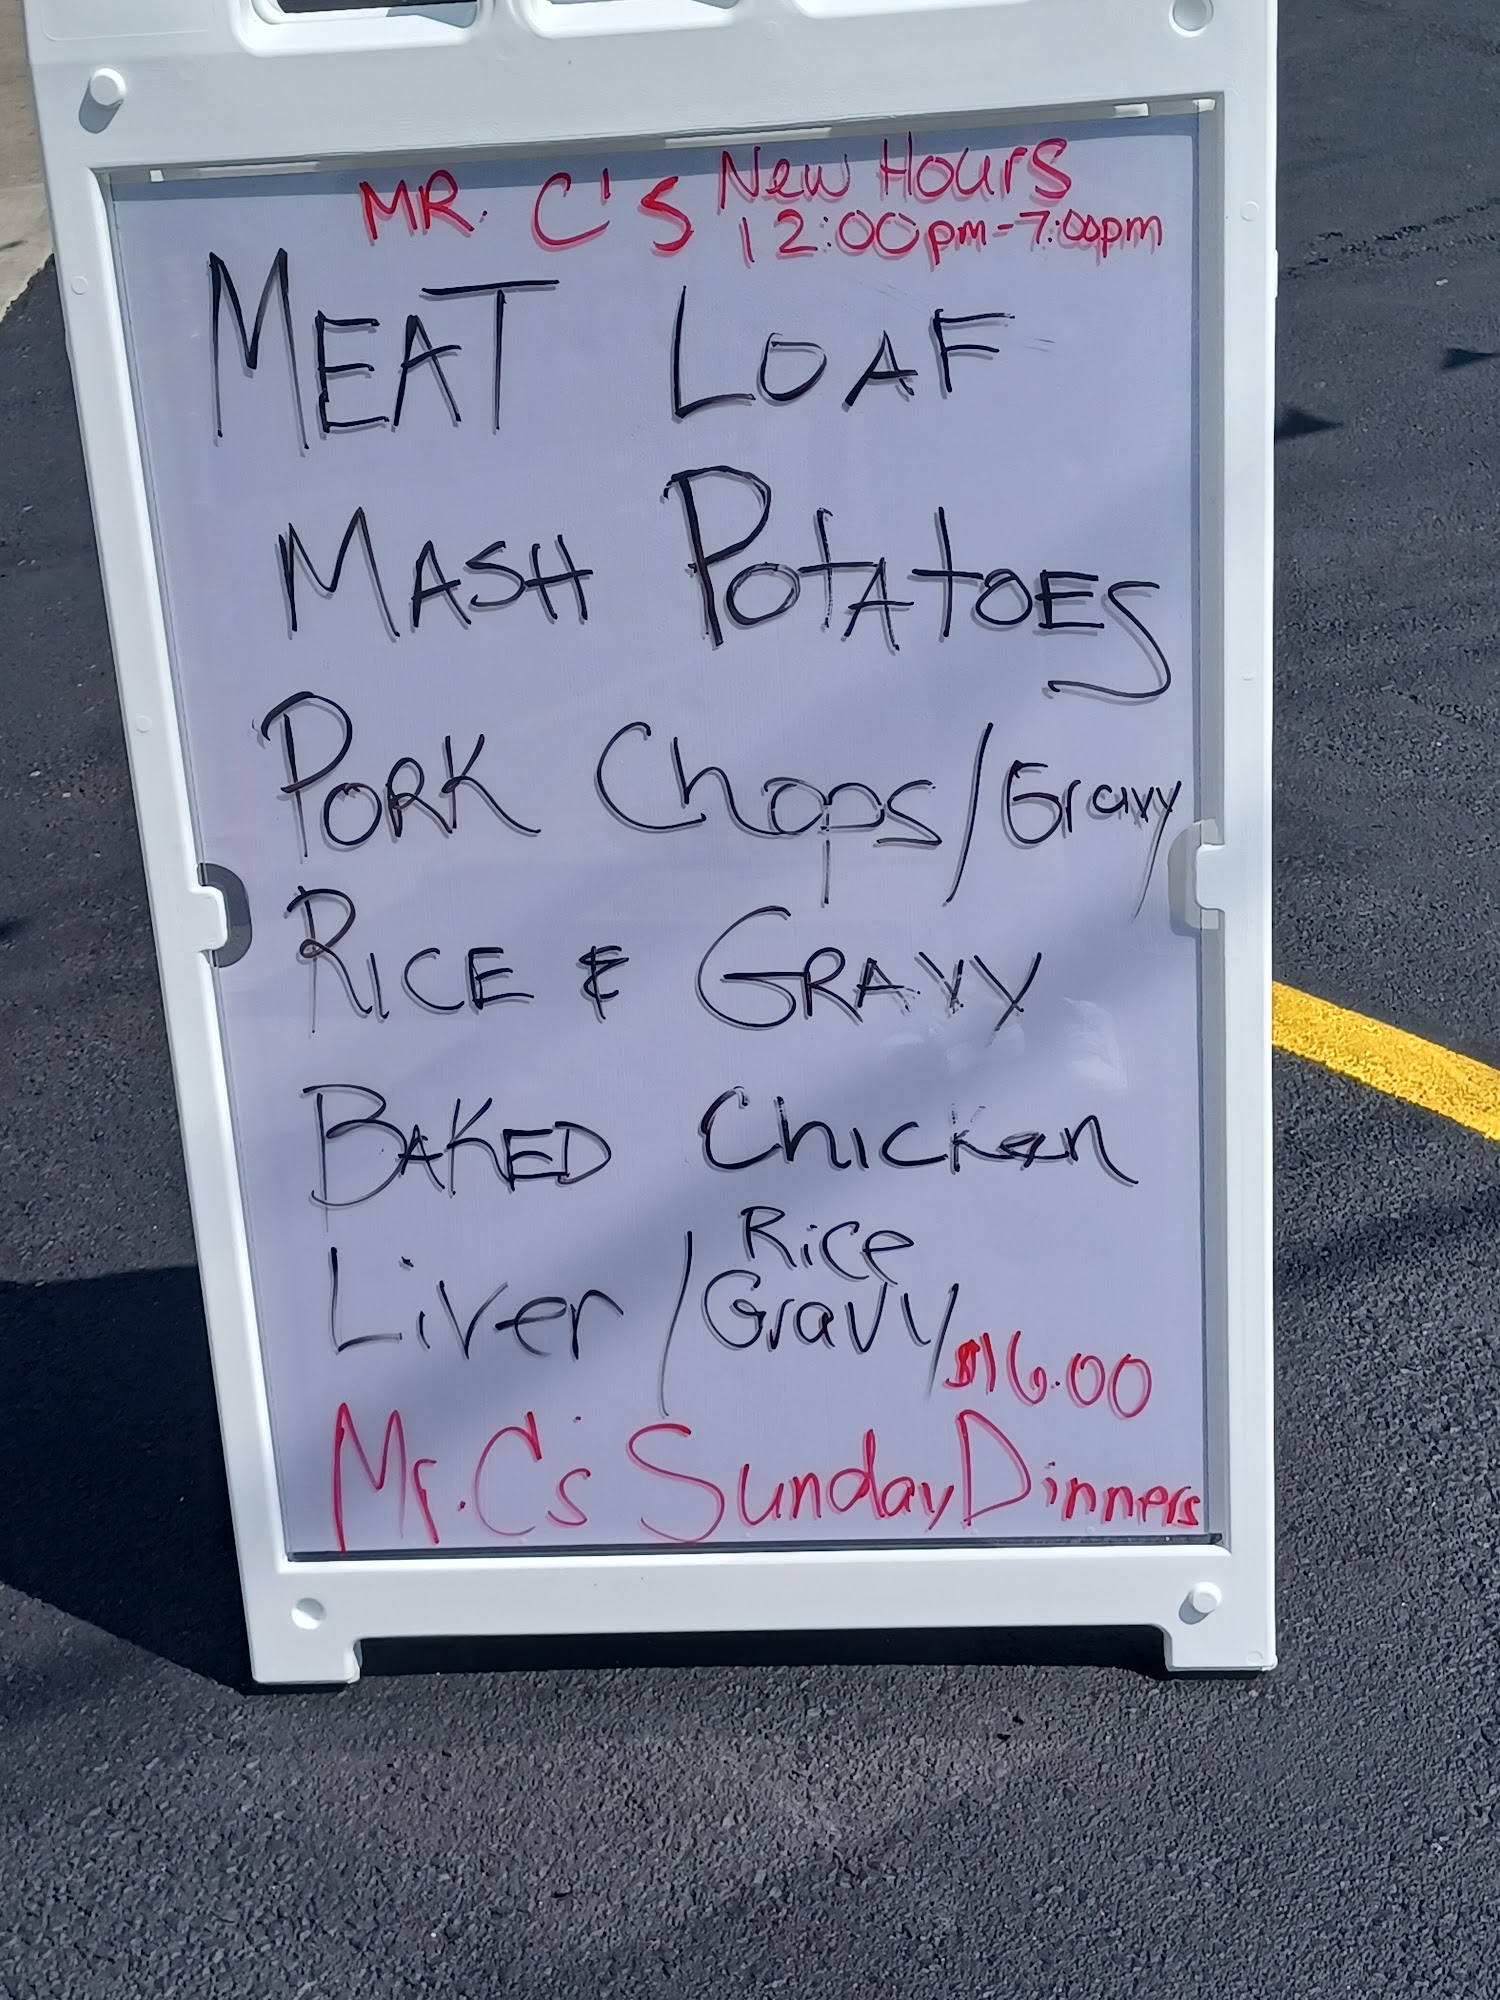 MR. C'S New Hours
12:00pm-7:00pm
MEAT LOAF
MASH POTATOES
PORK Chops/Gravy
RICE & GRAVY
BAKED Chicken
Liver / Rice
Gravy
$16.00
Mr. C's Sunday Dinners